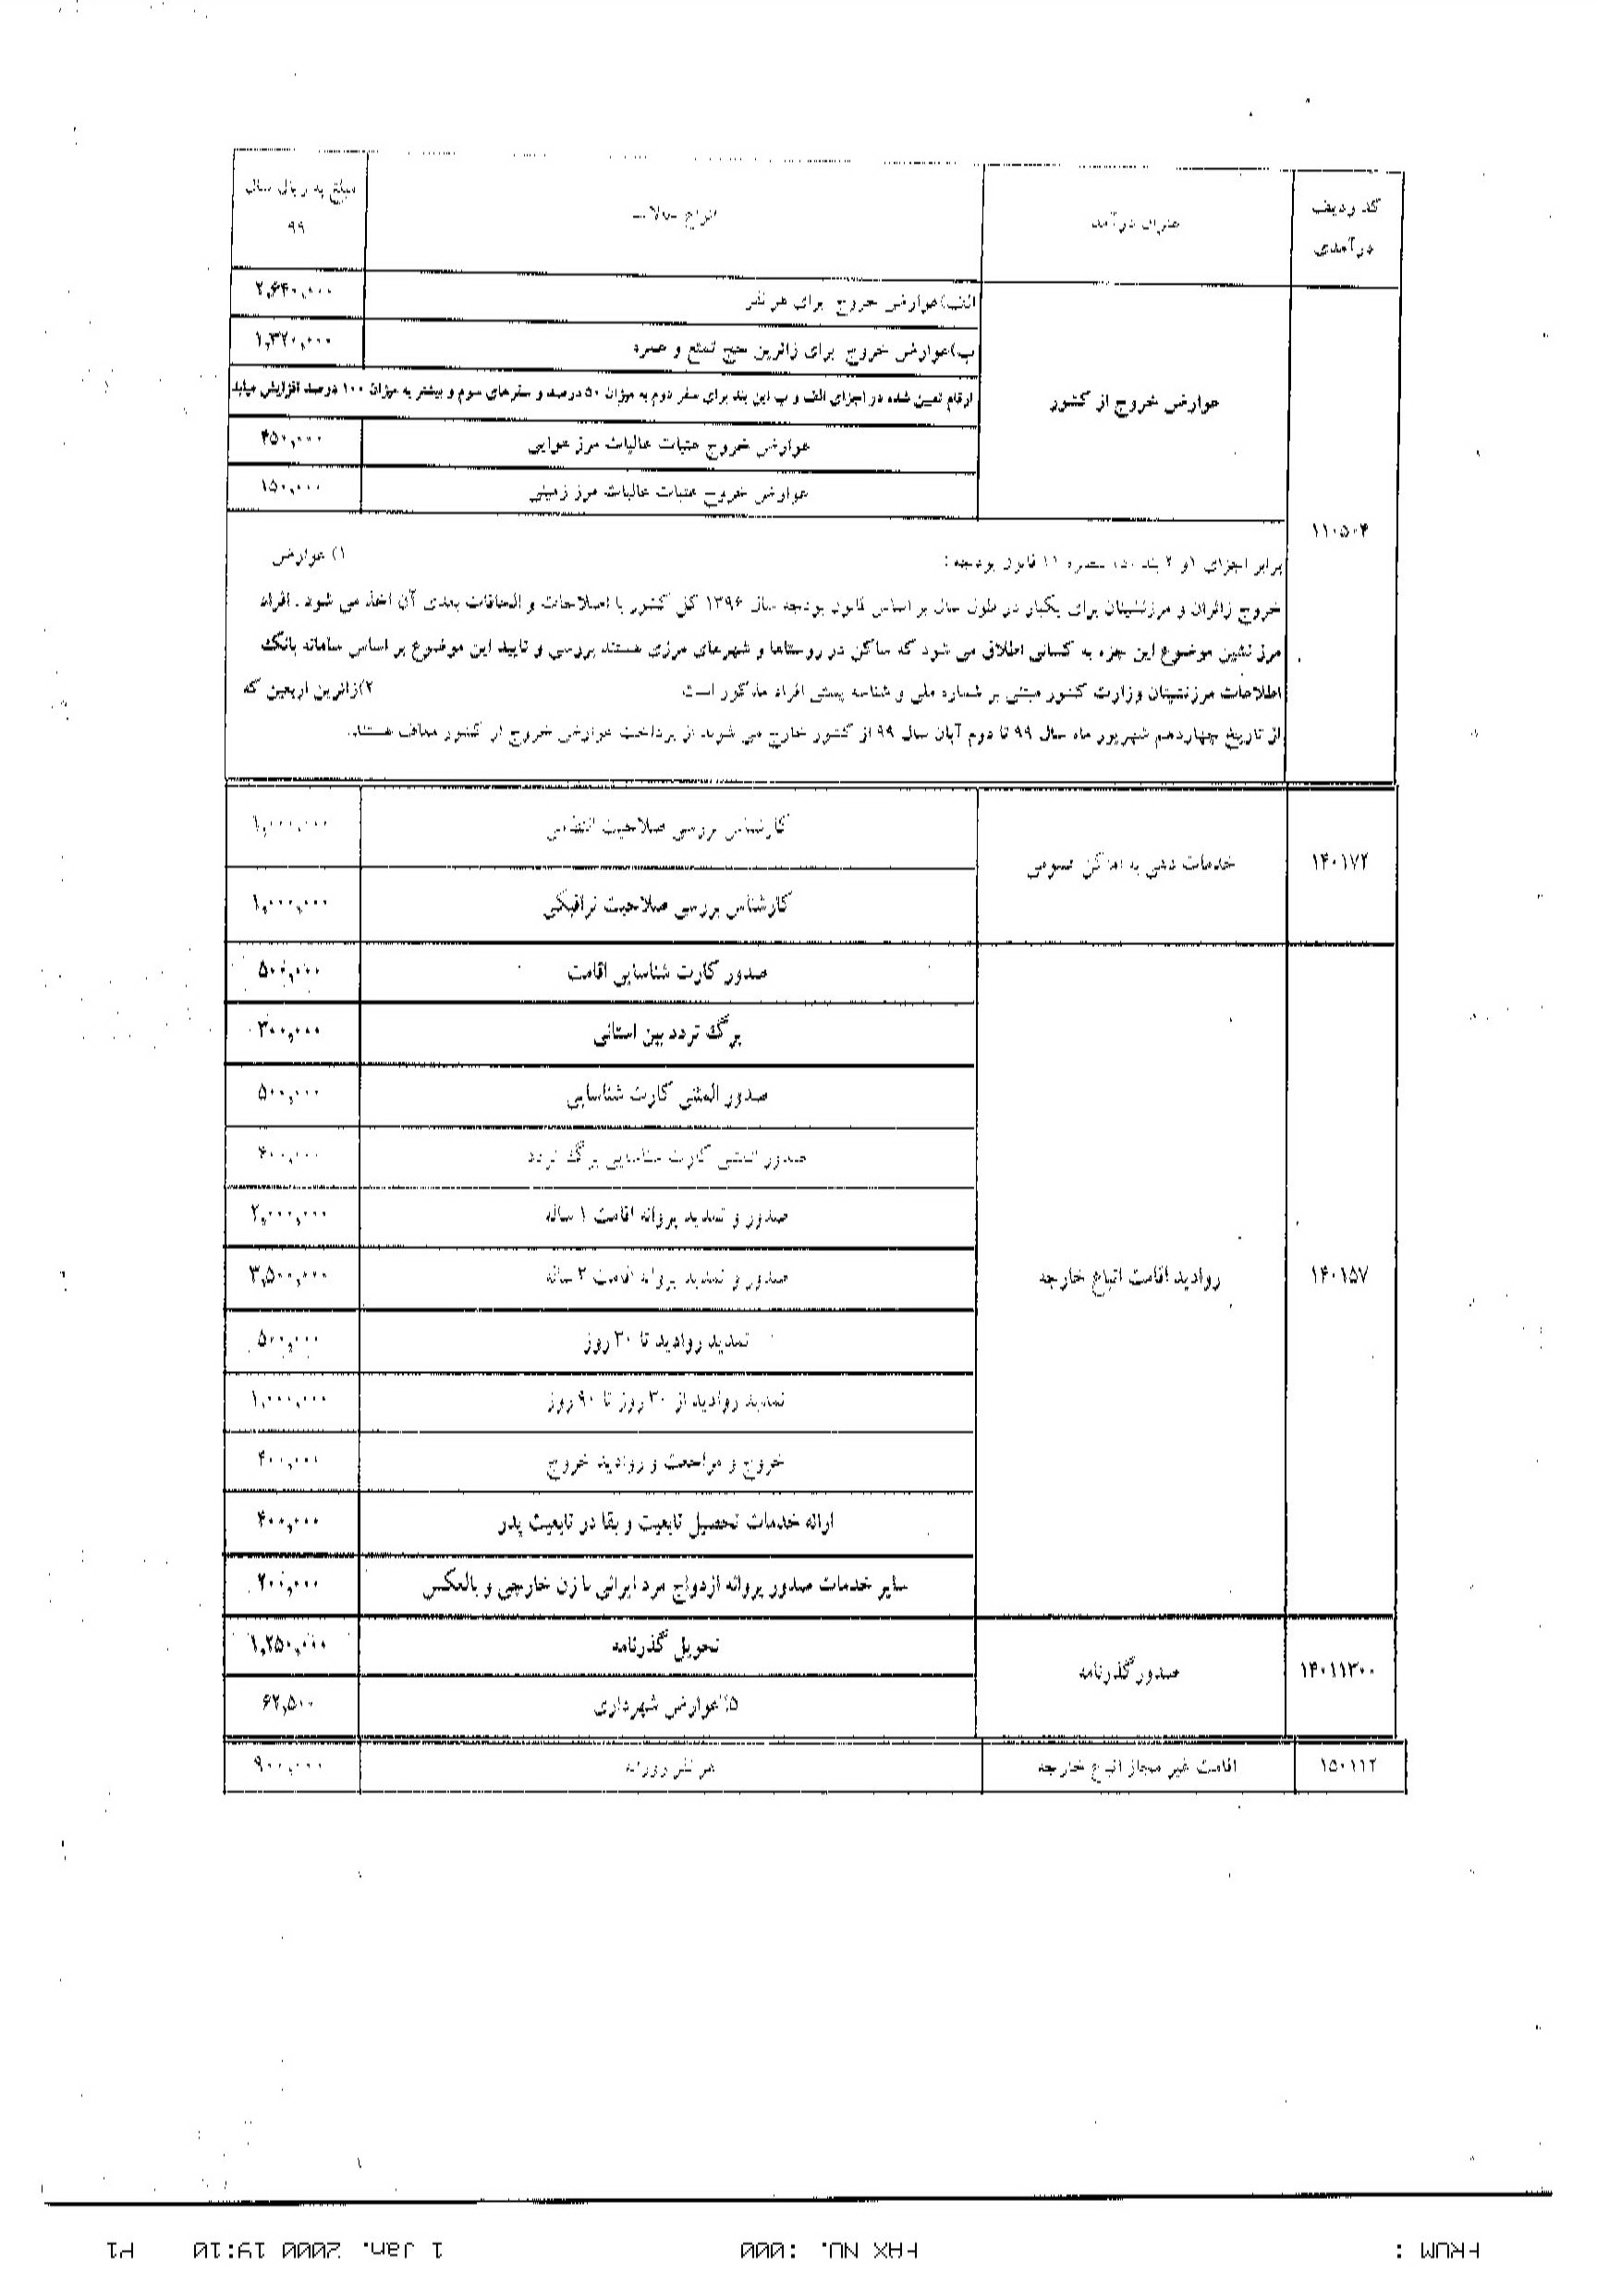 کد ردیف درآمدی
عنوان درآمد
انواع حالات
مبلغ به ریال سال ۹۹
۱۱۰۵۰۴
عوارض خروج از کشور
الف)عوارض خروج برای هر نفر
۲,۶۴۰,۰۰۰
ب)عوارض خروج برای زائرین حج تمتع و عمره
۱,۳۲۰,۰۰۰
ارقام تعیین شده در اجزای الف و ب این بند برای سفر دوم به میزان ۵۰ درصد و سفرهای سوم و بیشتر به میزان ۱۰۰ درصد افزایش میابد
عوارض خروج عتبات عالیات مرز هوایی
۴۵۰,۰۰۰
عوارض خروج عتبات عالیات مرز زمینی
۱۵۰,۰۰۰
برابر اجزای ۱و ۲ بند تبصره ۱۱ قانون بودجه : ۱) عوارض
خروج زائران و مرزنشینان برای یکبار در طول سال بر اساس قانون بودجه سال ۱۳۹۶ کل کشور با اصلاحات و الحاقات بعدی آن اخذ می شود . افراد
مرز نشین موضوع این جزء به کسانی اطلاق می شود که ساکن در روستاها و شهرهای مرزی هستند بررسی و تایید این موضوع بر اساس سامانه بانک
اطلاعات مرزنشینان وزارت کشور مبتنی بر شماره ملی و شناسه پستی افراد مذکور است ۲)زائرین اربعین که
از تاریخ چهاردهم شهریور ماه سال ۹۹ تا دوم آبان سال ۹۹ از کشور خارج می شوند از پرداخت عوارض خروج از کشور معاف هستند.
۱۴۰۱۷۲
خدمات دهی به اماکن عمومی
کارشناس بررسی صلاحیت انتظامی
۱,۰۰۰,۰۰۰
کارشناس بررسی صلاحیت ترافیکی
۱,۰۰۰,۰۰۰
۱۴۰۱۵۷
روادید اقامت اتباع خارجه
صدور کارت شناسایی اقامت
۵۰۰,۰۰۰
برگ تردد بین استانی
۳۰۰,۰۰۰
صدور المثنی کارت شناسایی
۵۰۰,۰۰۰
صدور المثنی کارت شناسایی برگ تردد
۴۰۰,۰۰۰
صدور و تمدید پروانه اقامت ۱ ساله
۲,۰۰۰,۰۰۰
صدور و تمدید پروانه اقامت ۲ ساله
۳,۵۰۰,۰۰۰
تمدید روادید تا ۳۰ روز
۵۰۰,۰۰۰
تمدید روادید از ۳۰ روز تا ۹۰ روز
۱,۰۰۰,۰۰۰
خروج و مراجعت و روادید خروج
۴۰۰,۰۰۰
ارائه خدمات تحصیل تابعیت و بقا در تابعیت پدر
۴۰۰,۰۰۰
سایر خدمات صدور پروانه ازدواج مرد ایرانی با زن خارجی و بالعکس
۲۰۰,۰۰۰
۱۴۰۱۱۳۰۰
صدور گذرنامه
تحویل گذرنامه
۱,۲۵۰,۰۰۰
۵٪عوارض شهرداری
۶۲,۵۰۰
۱۵۰۱۱۲
اقامت غیر مجاز اتباع خارجه
هر نفر روزانه
۹۰۰,۰۰۰
FROM : FAX NO. :000 1 Jan. 2000 19:10 P1